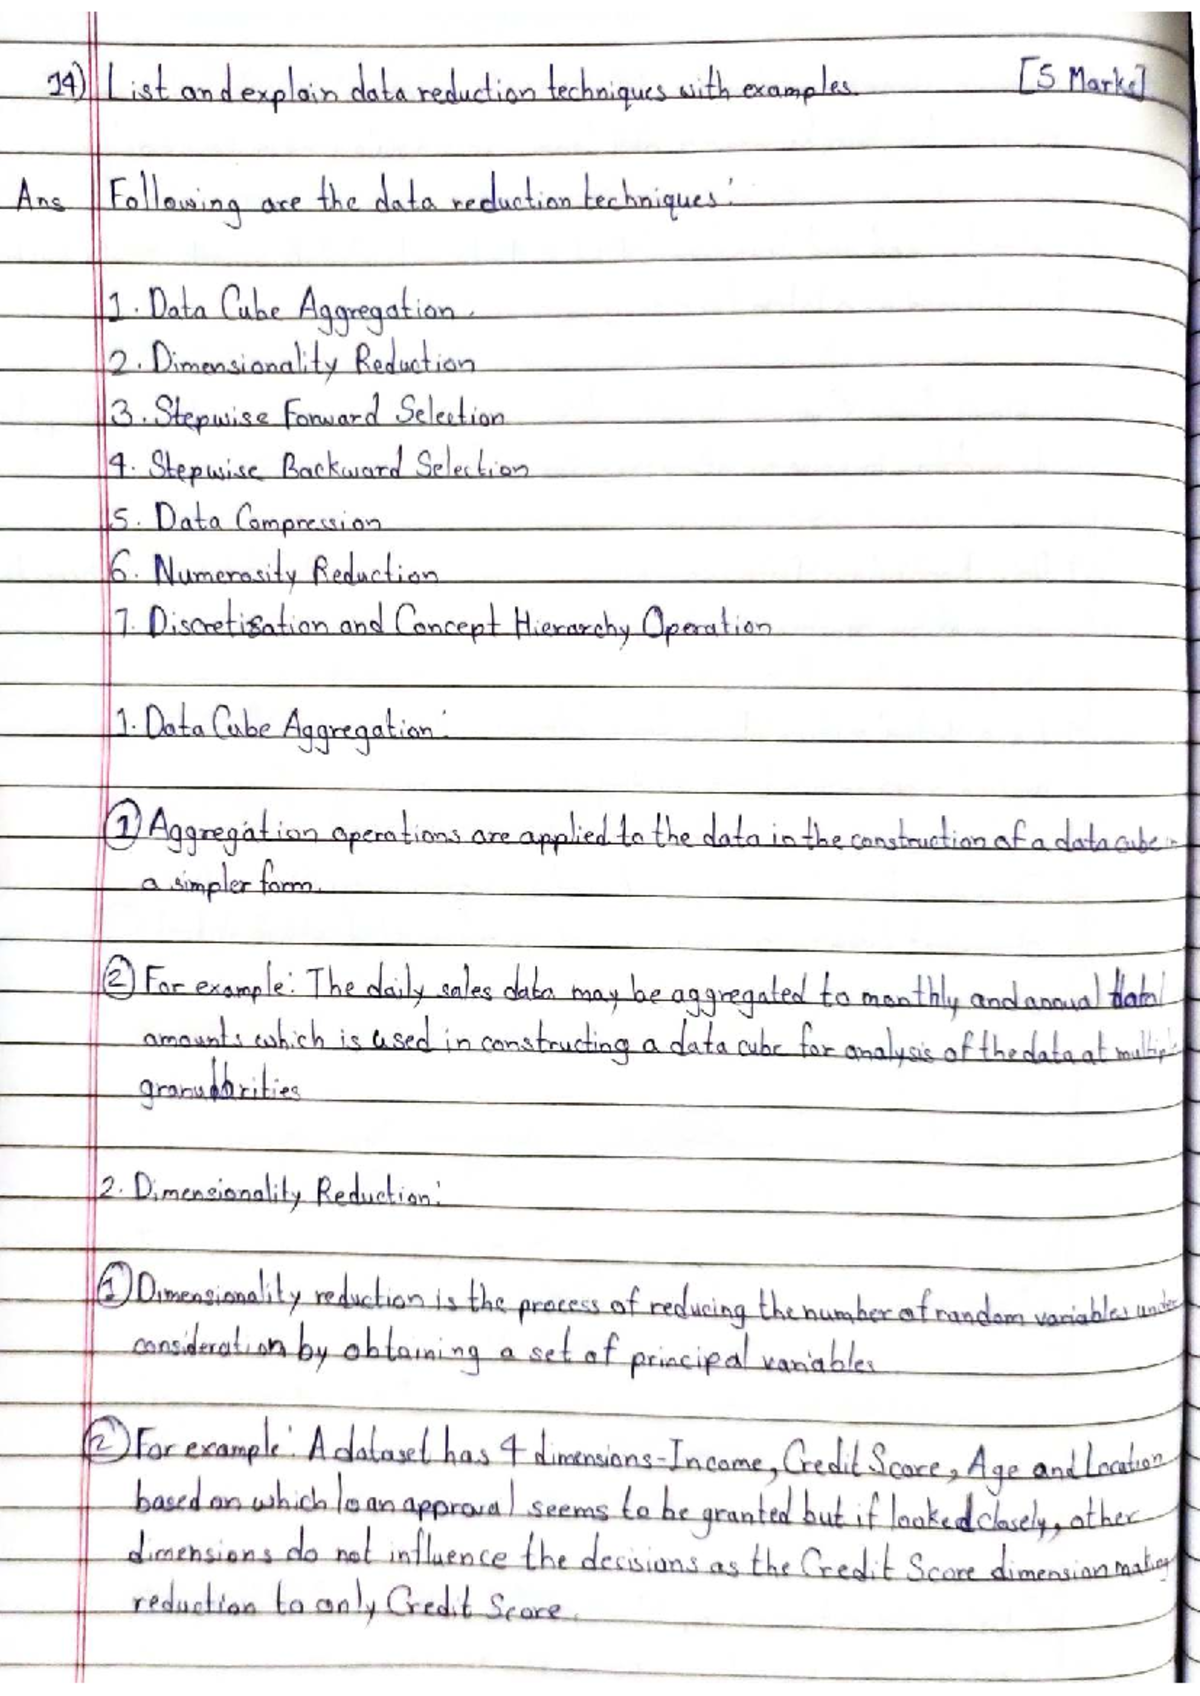 14) List and explain data reduction techniques with examples. [5 Marks]
Ans Following are the data reduction techniques:
1. Data Cube Aggregation.
2. Dimensionality Reduction
3. Stepwise Forward Selection
4. Stepwise Backward Selection
5. Data Compression
6. Numerosity Reduction
7. Discretisation and Concept Hierarchy Operation
1. Data Cube Aggregation:
① Aggregation operations are applied to the data in the construction of a data cube in
a simpler form.
② For example: The daily sales data may be aggregated to monthly and annual total
amounts which is used in constructing a data cube for analysis of the data at multiple
granularities
2. Dimensionality Reduction:
① Dimensionality reduction is the process of reducing the number of random variables under
consideration by obtaining a set of principal variables
② For example: A dataset has 4 dimensions - Income, Credit Score, Age and Location
based on which loan approval seems to be granted but if looked closely, other
dimensions do not influence the decisions as the Credit Score dimension making
reduction to only Credit Score.